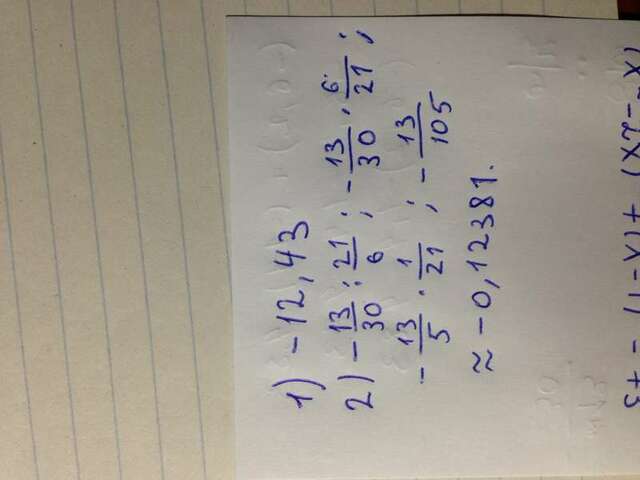 1) -12,43
2) -13/30 : 21/6 ; -13/30 · 6/21 ;
-13/5 · 1/21 ; -13/105
≈ -0,12381.